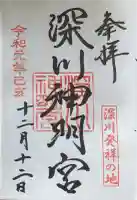 奉拝
深川発祥の地
深川神明宮
令和元年己亥
十二月十二日